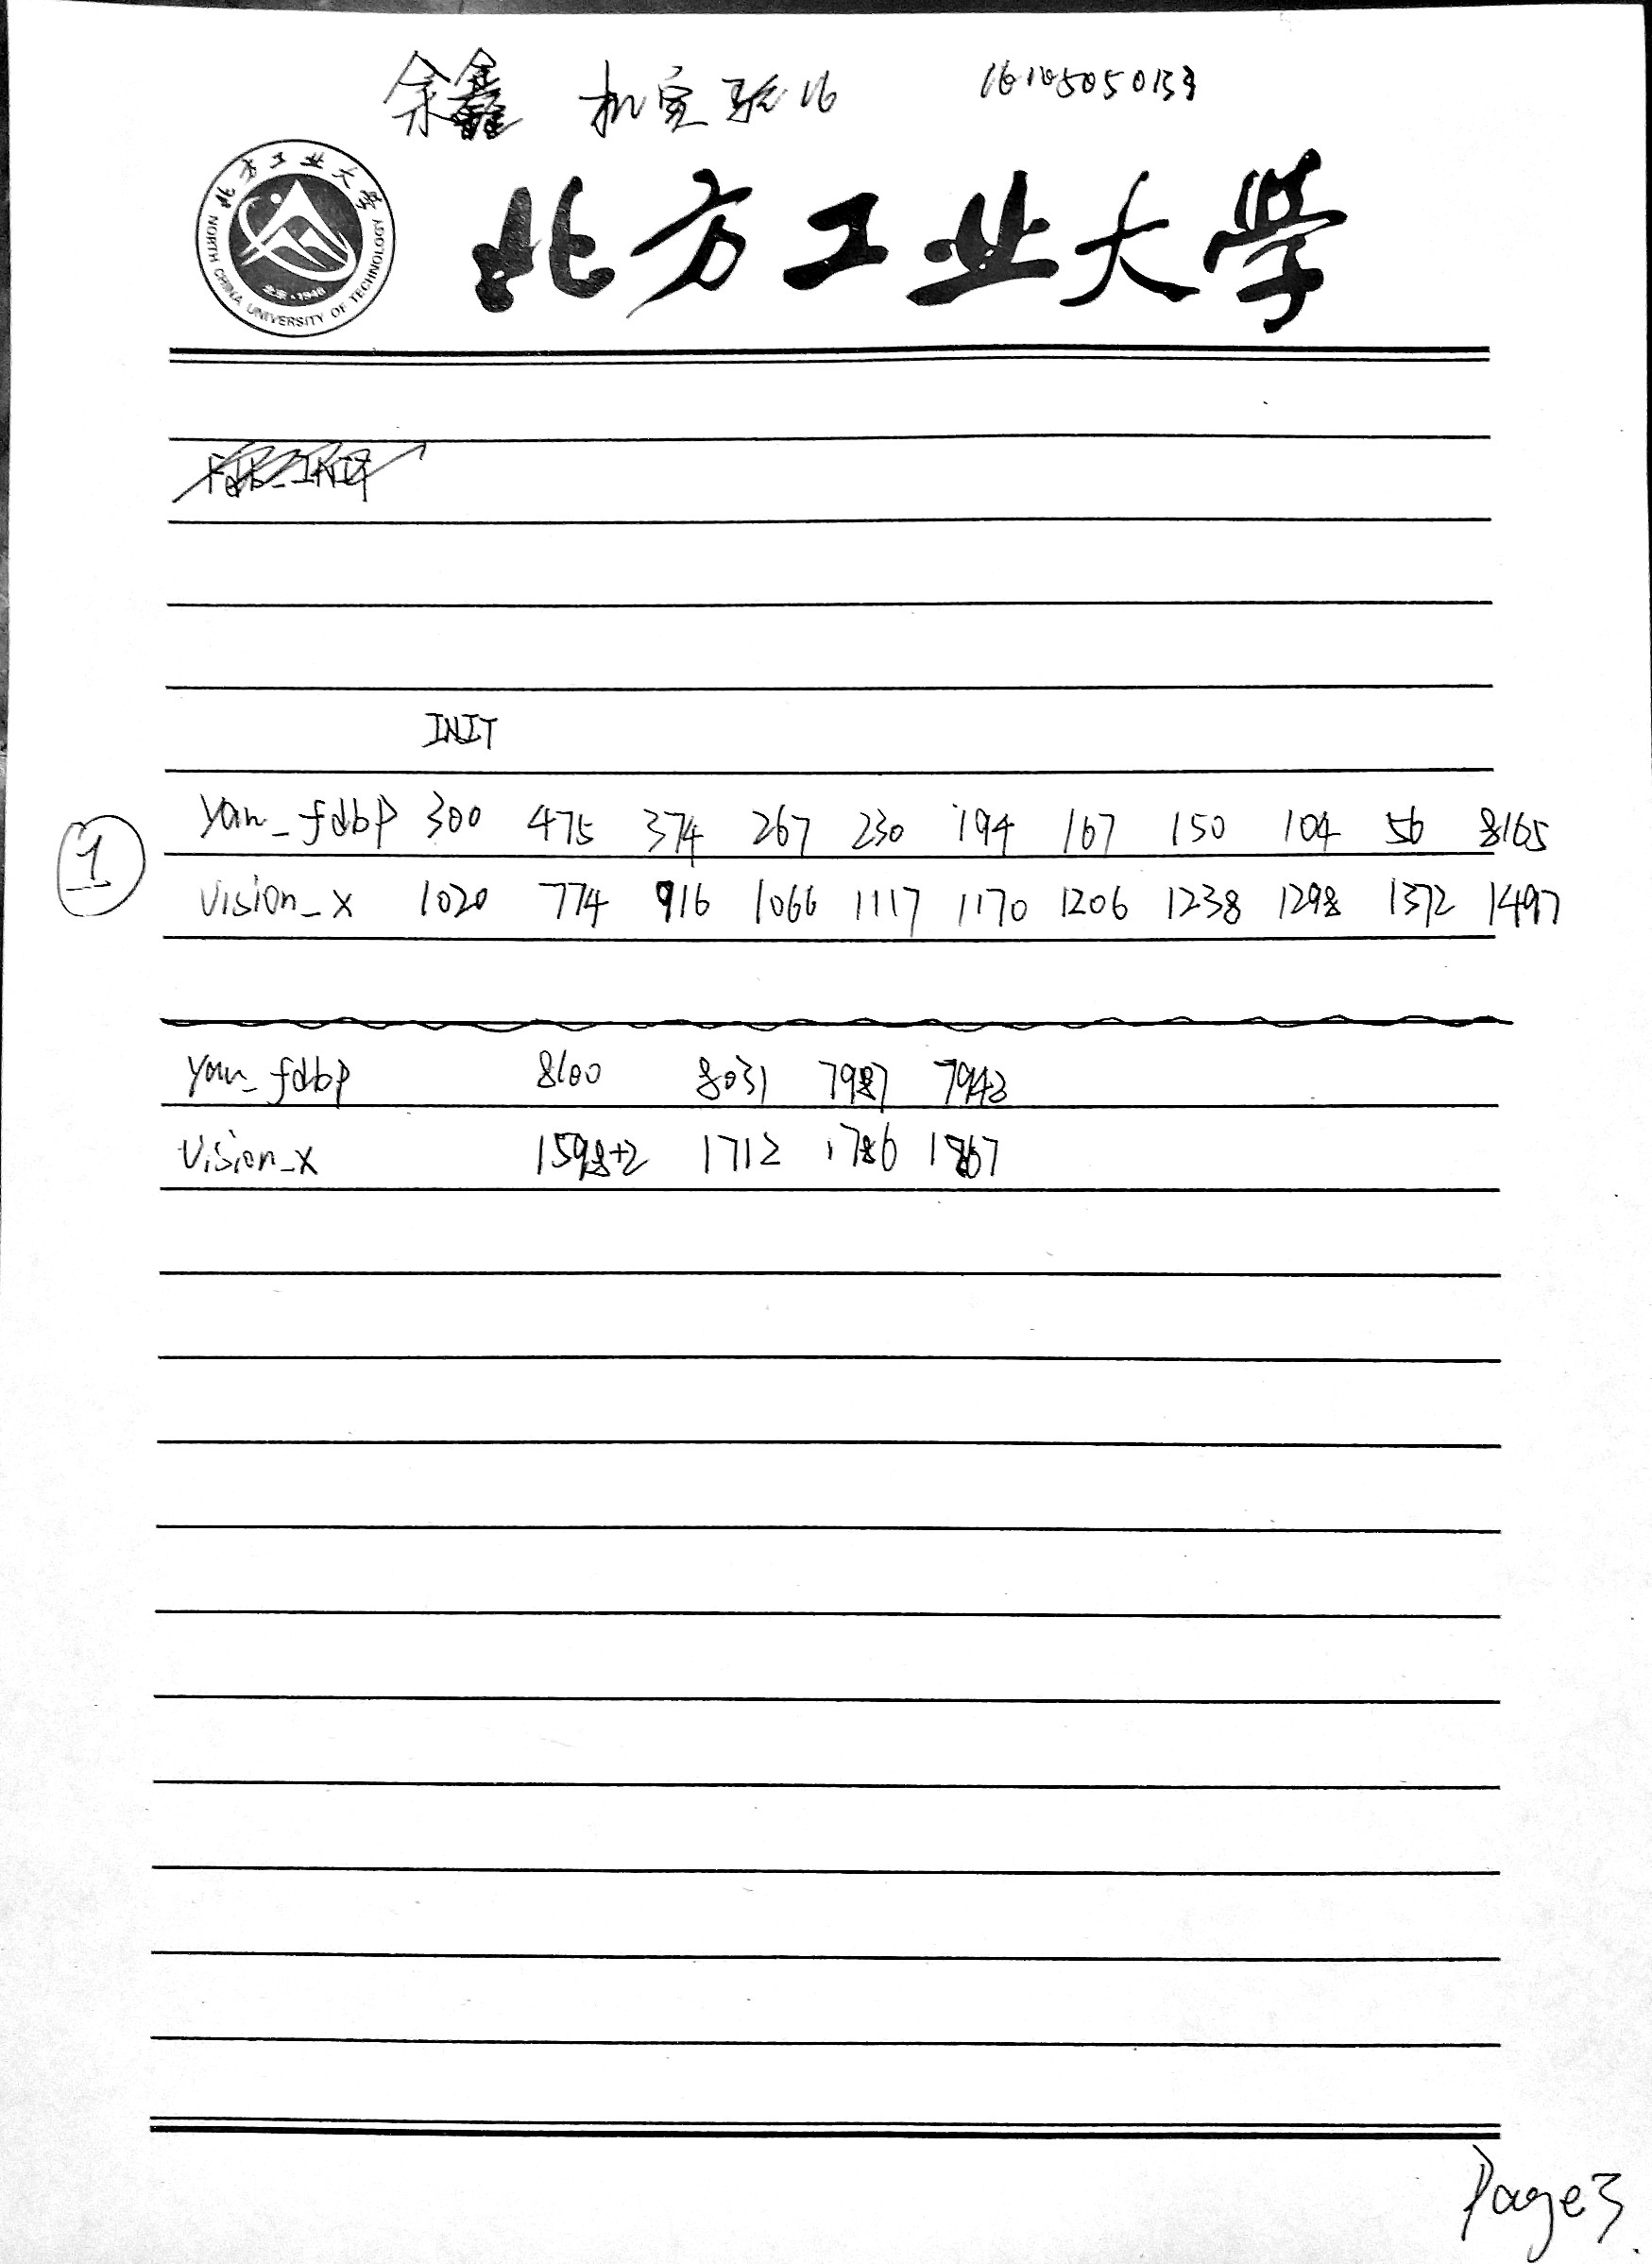 余鑫 机实验16 16105050133
北方工业大学
NORTH CHINA UNIVERSITY OF TECHNOLOGY
北京·1946
北方工业大学
INIT
Yaw_fdbP 300 475 374 267 230 194 167 150 104 56 8165
① Vision_x 1020 774 916 1066 1117 1170 1206 1238 1298 1372 1497
Yaw_fdbP 8100 8031 7987 7943
Vision_x 1598+2 1712 1786 1867
Page3